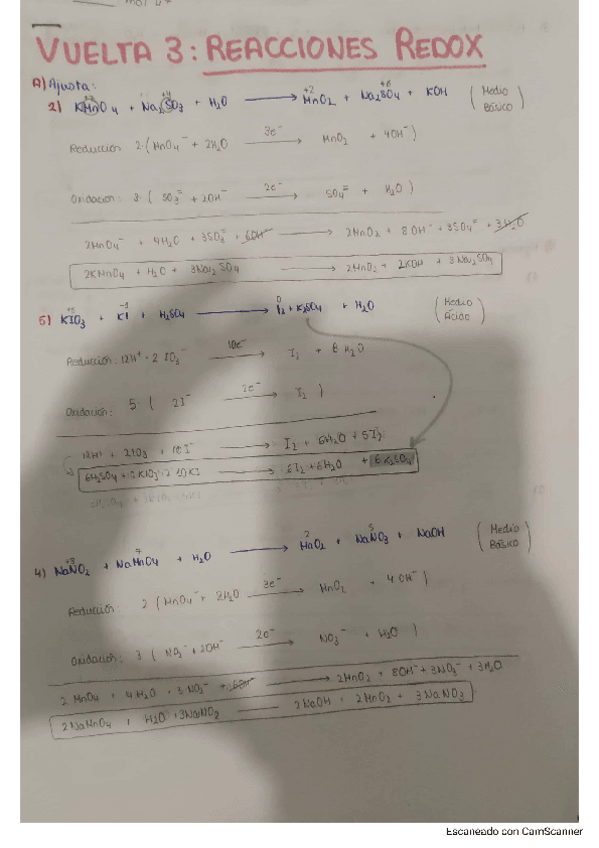 VUELTA 3: REACCIONES REDOX
A) Ajusta:
+4 +2 +6
2) KMnO4 + Na2SO3 + H2O → MnO2 + Na2SO4 + KOH (Medio Básico)
Reducción 2·(MnO4⁻ + 2H2O 3e⁻→ MnO2 + 4OH⁻)
Oxidación: 3·(SO3⁼ + 2OH⁻ 2e⁻→ SO4⁼ + H2O)
2MnO4⁻ + 4H2O + 3SO3⁼ + 6OH⁻ → 2MnO2 + 8OH⁻ + 3SO4⁼ + 3H2O
2KMnO4 + H2O + 3Na2SO4 → 2MnO2 + 2KOH + 3Na2SO4
+5 -1 0
5) KIO3 + KI + H2SO4 → I2 + K2SO4 + H2O (Medio Ácido)
Reducción: 12H⁺ + 2IO3⁻ 10e⁻→ I2 + 6H2O
Oxidación: 5·(2I⁻ 2e⁻→ I2)
12H⁺ + 2IO3 + 10I⁻ → I2 + 6H2O + 5I2
6H2SO4 + 2KIO3 + 10KI → 6I2 + 6H2O + 6K2SO4
+3 7 2 5
4) NaNO2 + NaMnO4 + H2O → MnO2 + NaNO3 + NaOH (Medio Básico)
Reducción: 2 (MnO4⁻ + 2H2O 3e⁻→ MnO2 + 4OH⁻)
Oxidación: 3 (NO2⁻ + 2OH⁻ 2e⁻→ NO3⁻ + H2O)
2MnO4 + 4H2O + 3NO2⁻ + 6OH⁻ → 2MnO2 + 8OH⁻ + 3NO3⁻ + 3H2O
2NaMnO4 + H2O + 3NaNO2 → 2NaOH + 2MnO2 + 3NaNO3
Escaneado con CamScanner